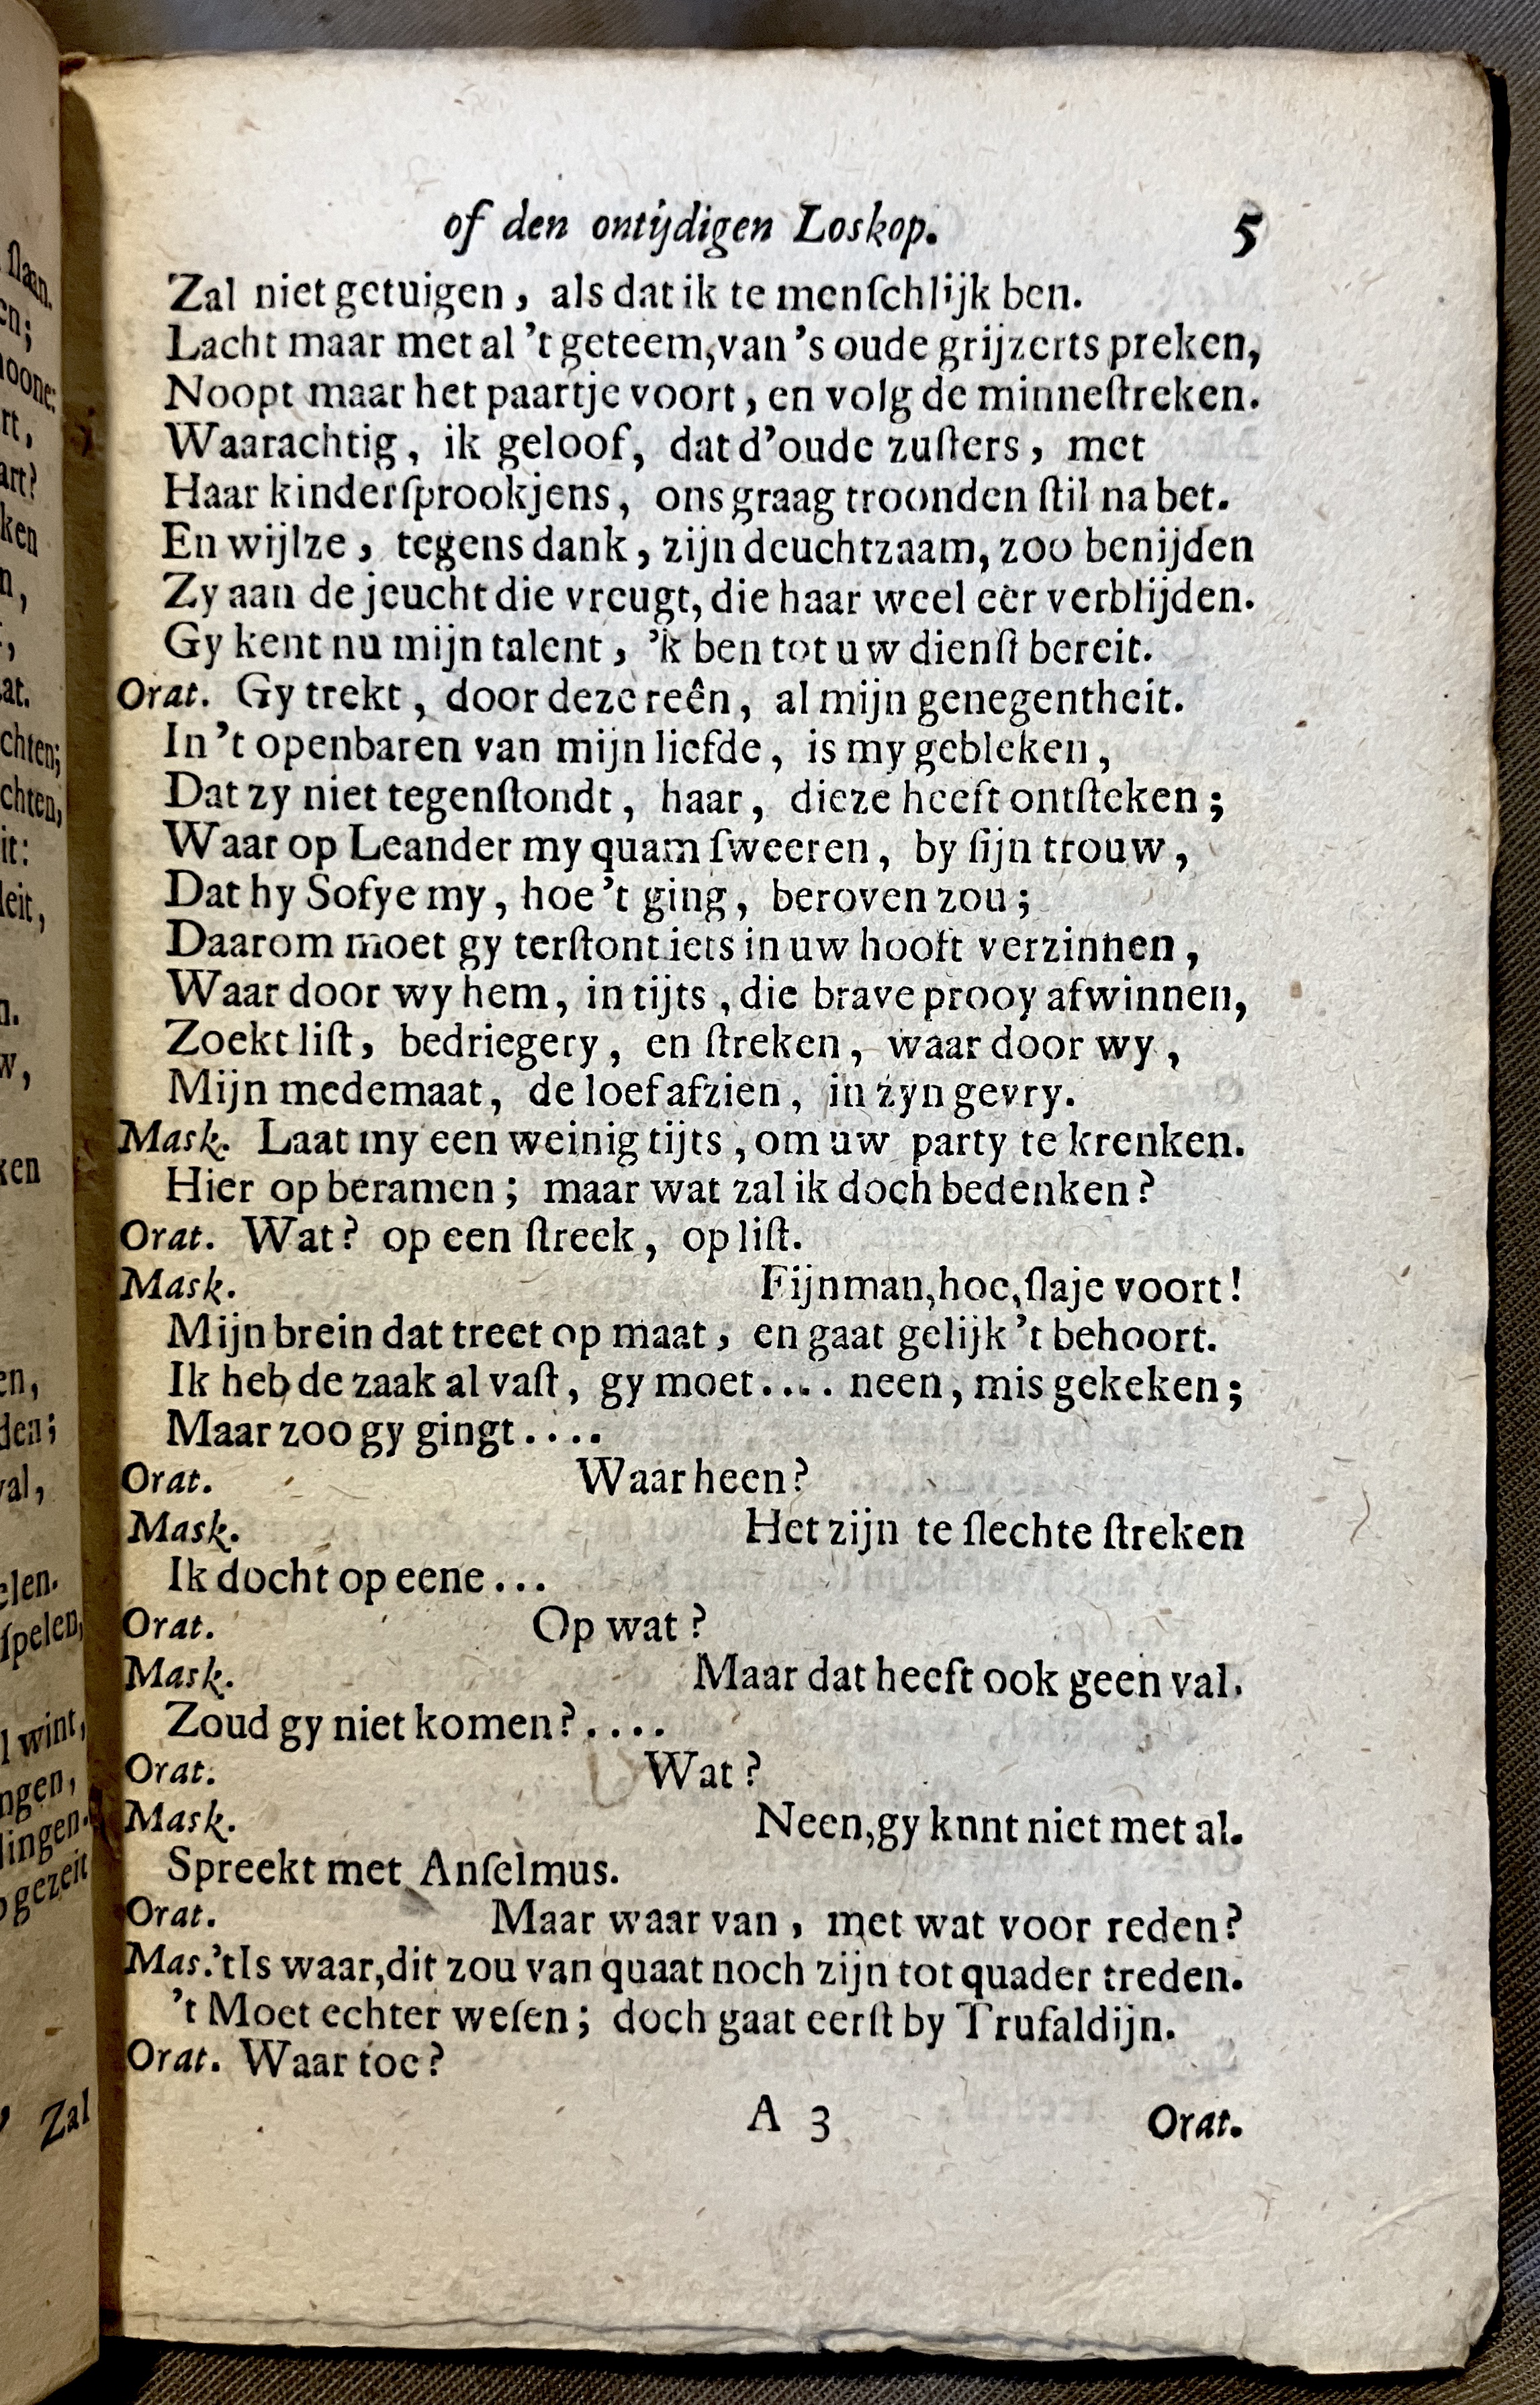 of den ontijdigen Loskop. 5
Zal niet getuigen, als dat ik te menſchlijk ben.
Lacht maar met al 't geteem, van 's oude grijzerts preken,
Noopt maar het paartje voort, en volg de minneſtreken.
Waarachtig, ik geloof, dat d'oude zuſters, met
Haar kinderſprookjens, ons graag troonden ſtil na bet.
En wijlze, tegens dank, zijn deuchtzaam, zoo benijden
Zy aan de jeucht die vreugt, die haar weel eer verblijden.
Gy kent nu mijn talent, 'k ben tot uw dienſt bereit.
Orat. Gy trekt, door deze reên, al mijn genegentheit.
In 't openbaren van mijn liefde, is my gebleken,
Dat zy niet tegenſtondt, haar, dieze heeft ontſteken;
Waar op Leander my quam ſweeren, by ſijn trouw,
Dat hy Sofye my, hoe 't ging, beroven zou;
Daarom moet gy terſtont iets in uw hooft verzinnen,
Waar door wy hem, in tijts, die brave prooy afwinnen,
Zoekt liſt, bedriegery, en ſtreken, waar door wy,
Mijn medemaat, de loef afzien, in zyn gevry.
Mask. Laat my een weinig tijts, om uw party te krenken.
Hier op beramen; maar wat zal ik doch bedenken?
Orat. Wat? op een ſtreek, op liſt.
Mask. Fijnman, hoe, ſlaje voort!
Mijn brein dat treet op maat, en gaat gelijk 't behoort.
Ik heb de zaak al vaſt, gy moet.... neen, mis gekeken;
Maar zoo gy gingt....
Orat. Waar heen?
Mask. Het zijn te ſlechte ſtreken
Ik docht op eene...
Orat. Op wat?
Mask. Maar dat heeft ook geen val.
Zoud gy niet komen?....
Orat. Wat?
Mask. Neen, gy knnt niet met al.
Spreekt met Anſelmus.
Orat. Maar waar van, met wat voor reden?
Mas. 'tIs waar, dit zou van quaat noch zijn tot quader treden.
't Moet echter weſen; doch gaat eerſt by Trufaldijn.
Orat. Waar toe?
A 3 Orat.